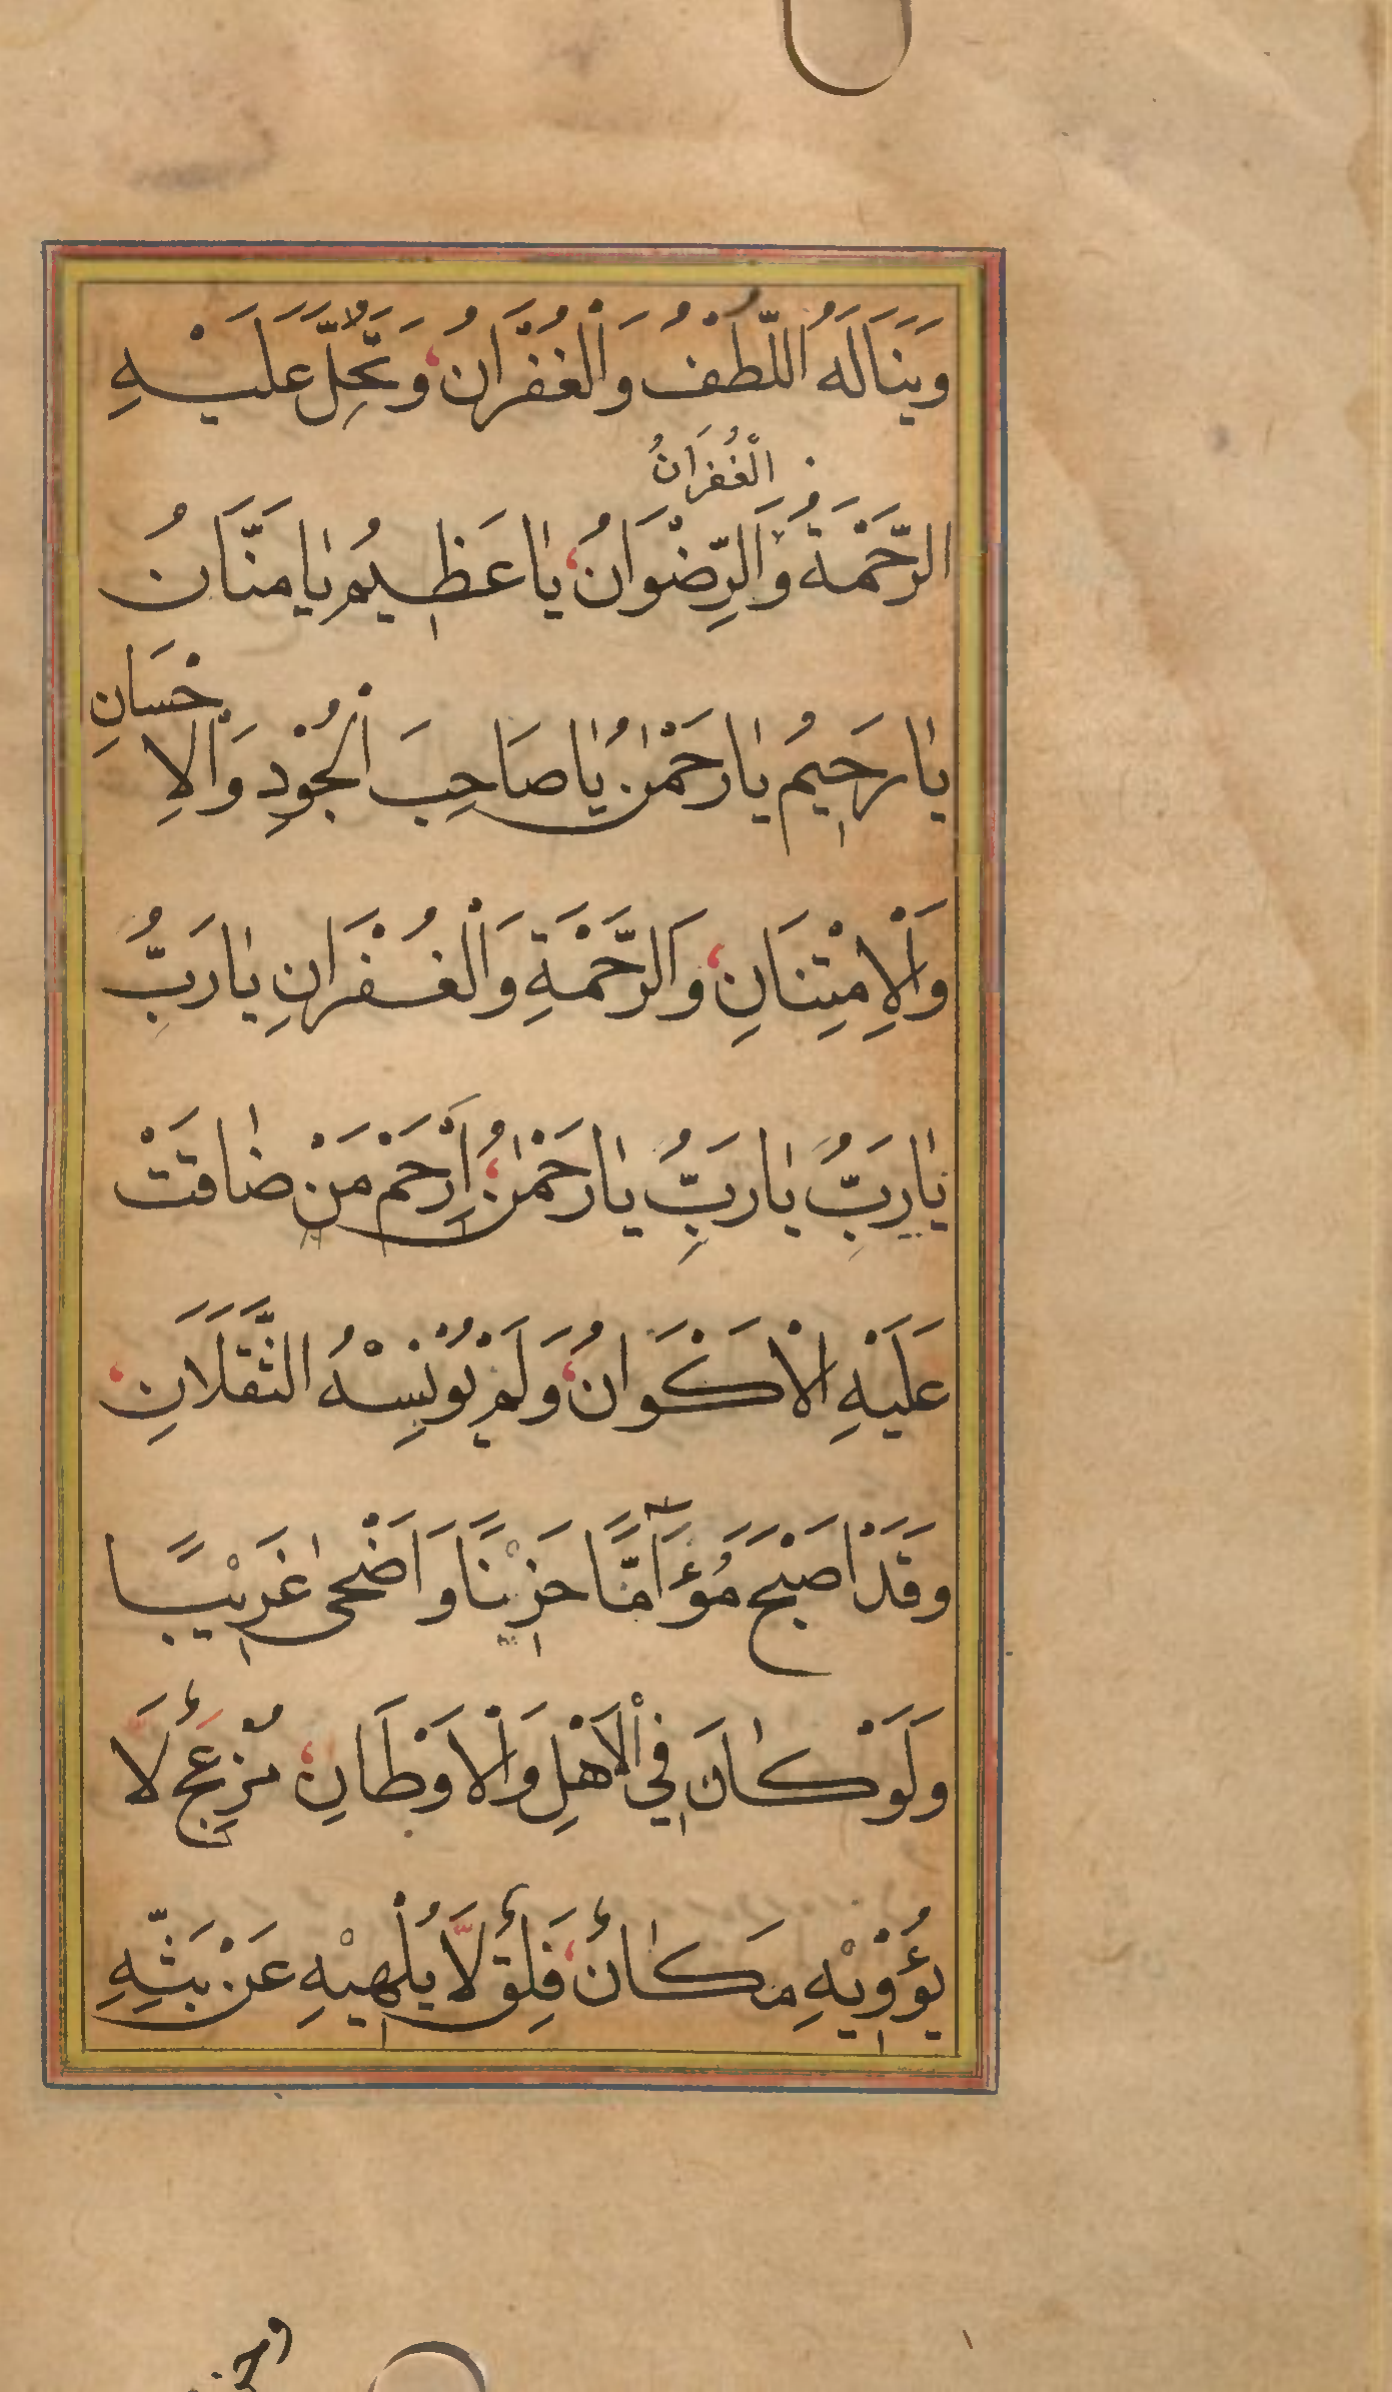 وَيَنَالَهُ اللُّطْفُ وَالْغُفْرَانُ، وَتَحِلَّ عَلَيْهِ
الْغُفْرَانُ
الرَّحْمَةُ وَالرِّضْوَانُ، يَا عَظِيمُ يَا مَنَّانُ
يَا رَحِيمُ يَا رَحْمٰنُ يَا صَاحِبَ الْجُوْدِ وَالْاِحْسَانِ
وَالْاِمْتِنَانِ، وَالرَّحْمَةِ وَالْغُفْرَانِ يَا رَبُّ
يَا رَبُّ يَا رَبُّ يَا رَحْمٰنُ، اِرْحَمْ مَنْ ضَاقَتْ
عَلَيْهِ الْاَكْوَانُ، وَلَمْ يُوْنِسْهُ الثَّقَلَانِ،
وَقَدْ اَصْبَحَ مُؤَامَّا حَزِيْنًا وَاَضْحٰى غَرِيْبًا
وَلَوْ كَانَ فِي الْاَهْلِ وَالْاَوْطَانِ، مُزْعَجٌ لَا
يُؤْوِيْهِ مَكَانٌ، قَلِقٌ لَّا يُلْهِيْهِ عَنْ بَثِّهِ